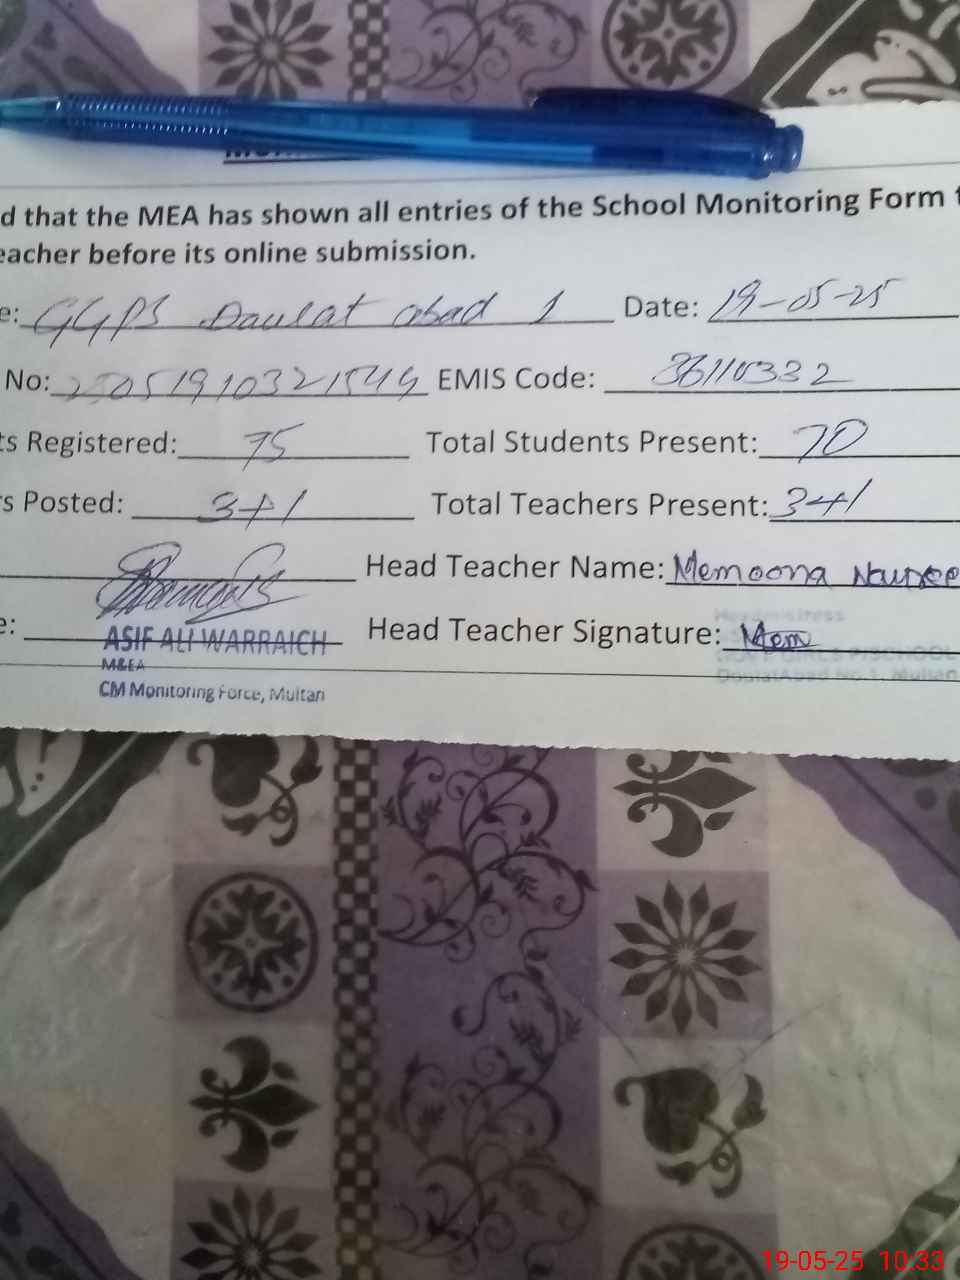 d that the MEA has shown all entries of the School Monitoring Form
eacher before its online submission.
e: GGPS Daulat abad 1 Date: 19-05-25
No: EMIS Code: 36110332
ts Registered: 75 Total Students Present: 70
s Posted: 3+1 Total Teachers Present: 3+1
Head Teacher Name: Memoona
e: ASIF ALI WARRAICH Head Teacher Signature: Mem
M&EA
CM Monitoring Force, Multan
Headmistress
GIRLS P/SCHOOL
DoulatAbad No.1, Multan
19-05-25 10:33